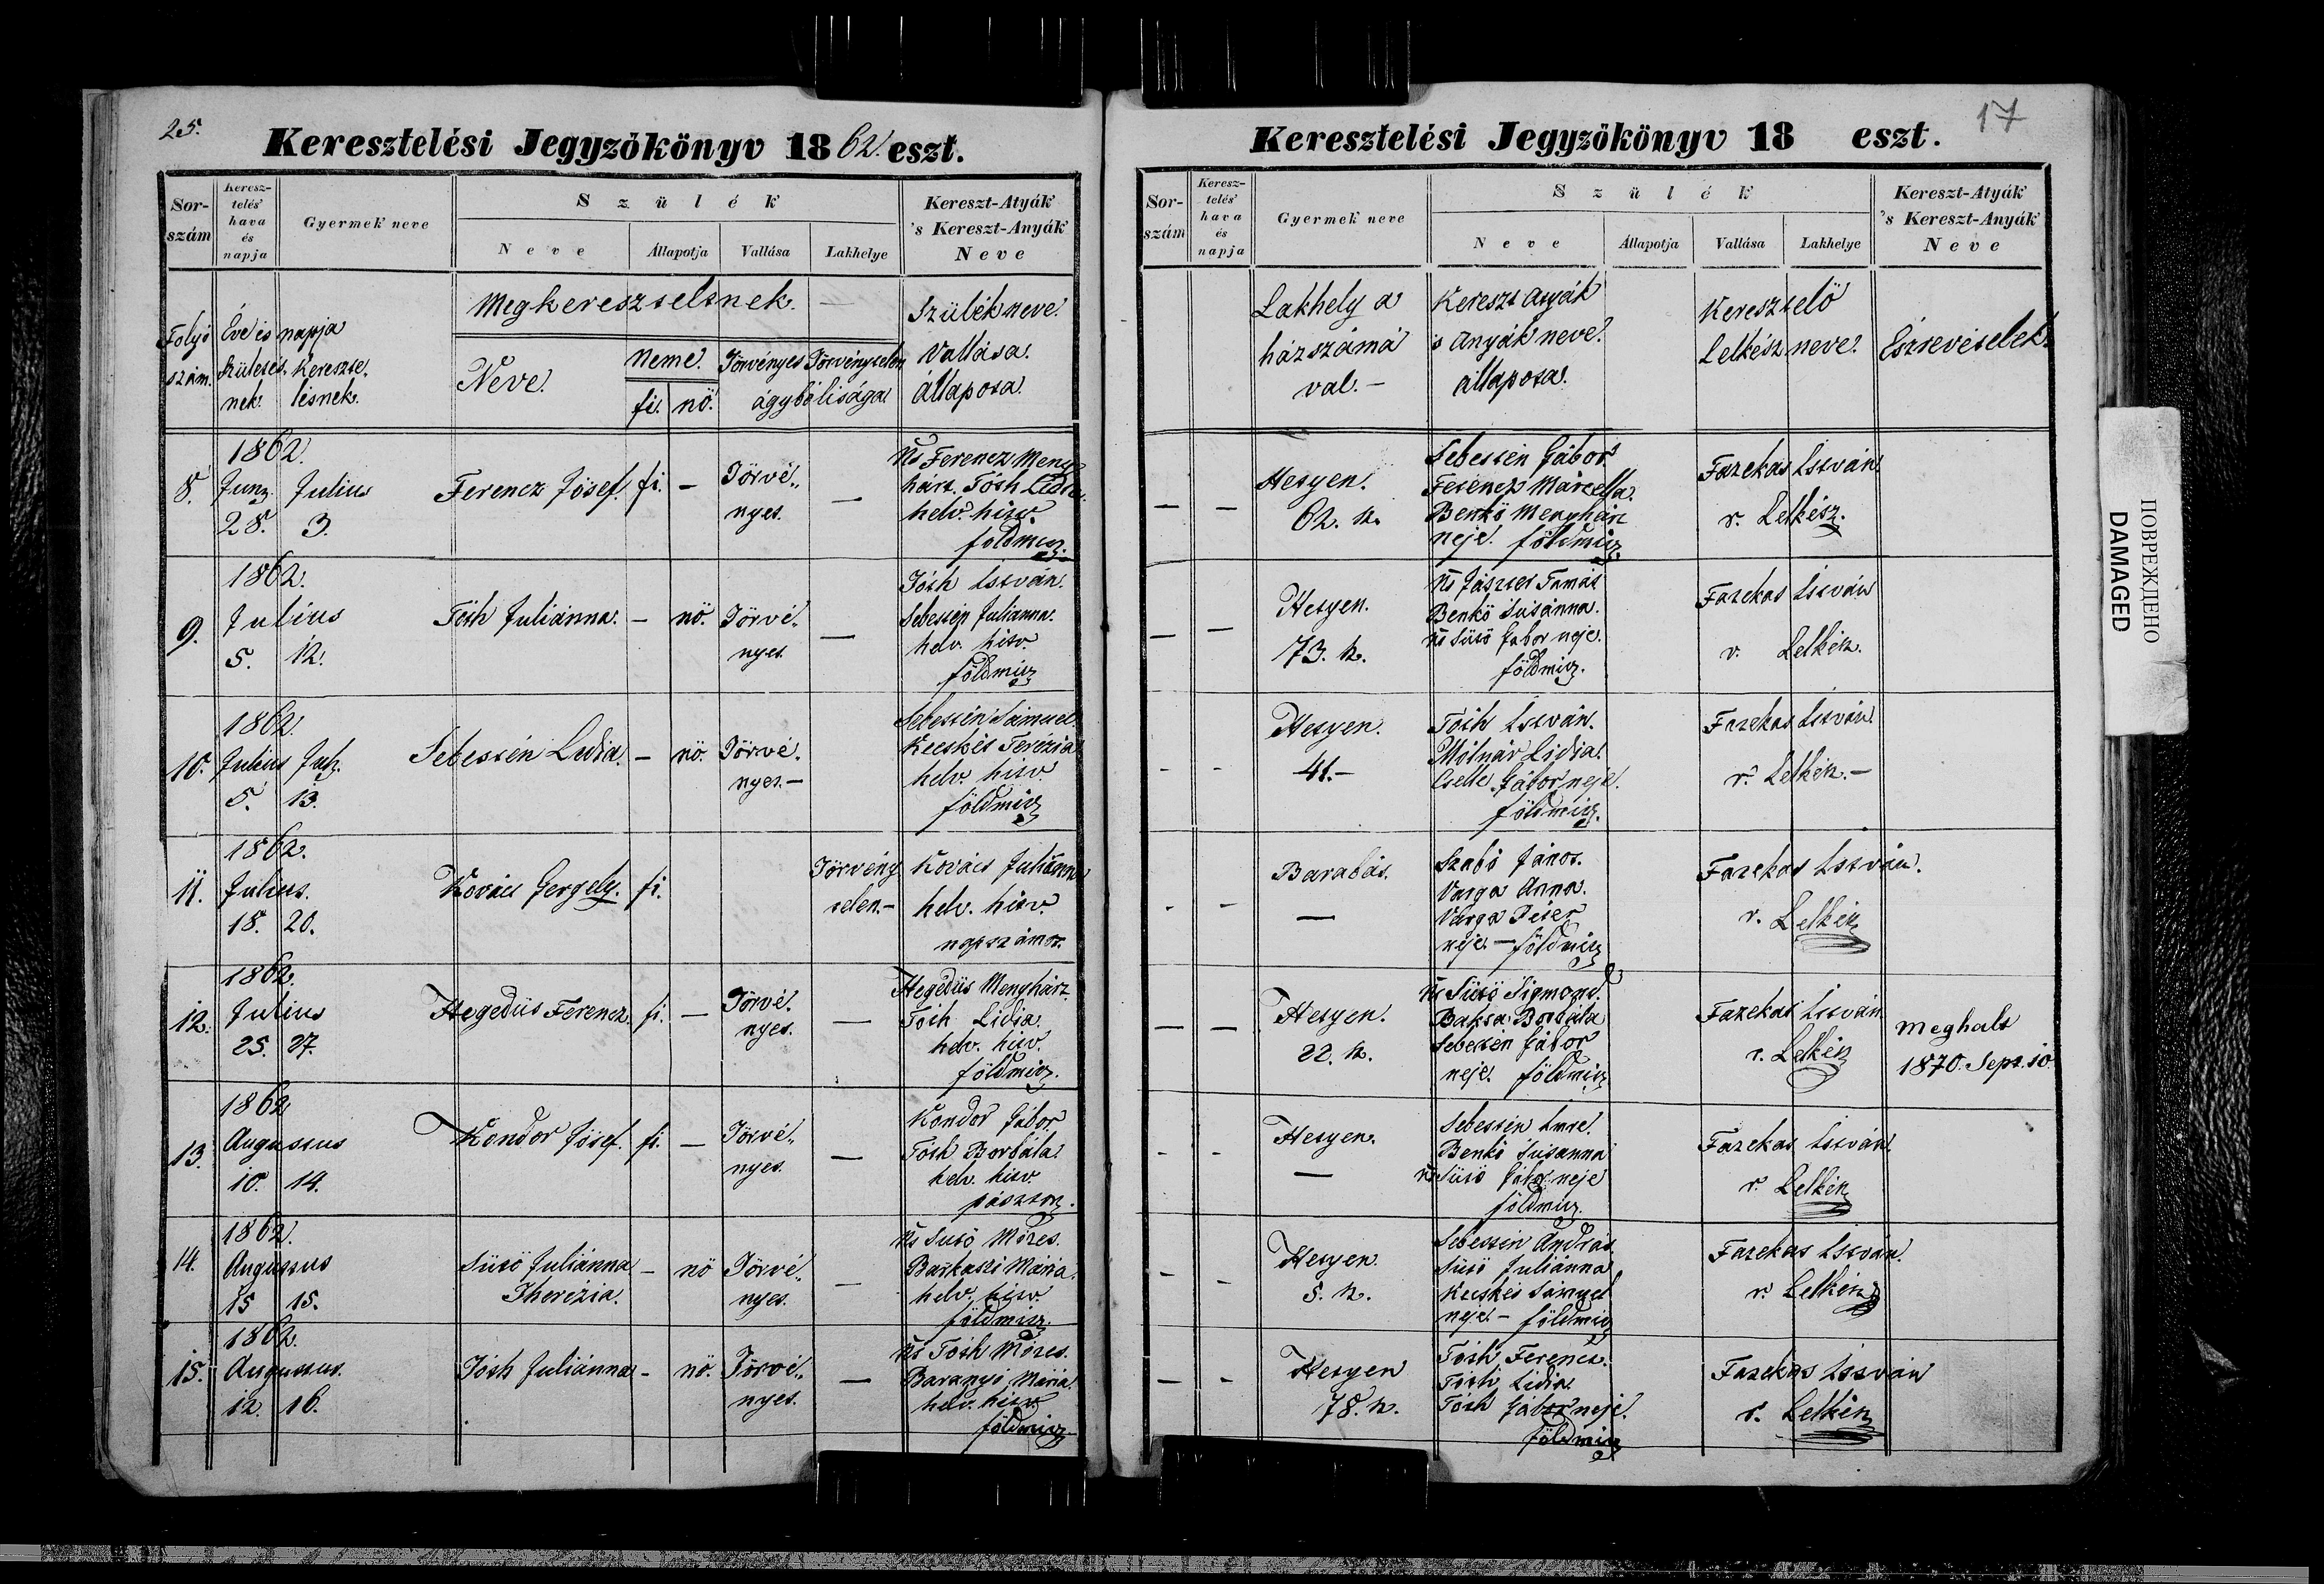 25.
Keresztelési Jegyzökönyv 1862. eszt.
Sor-
szám
Keresz-
telés'
hava
és
napja
Gyermek neve
Szülék
Neve
Állapotja
Vallása
Lakhelye
Kereszt-Atyák
's Kereszt-Anyák
Neve
Folyó
szám.
Éve és napja
születés.
nek.
kereszte.
lésnek.
Megkereszteltnek. —
Neve.
neme.
fi. nö.
Törvényes Törvénytelen
ágybóliságа
Szülék neve.
Vallása.
állapota.
8.
1862.
Juny. Julius
28. 3.
Ferencz Jósef. fi. —
Törvé„
nyes.
—
Ns Ferencz Meny
hárt. Tóth Lidia.
helv. hitv.
földmisz.
9.
1862.
Julius
5. 12.
Tóth Juliánna. — nö.
Törvé„
nyes.
—
Tóth István.
Sebestén Julianna.
helv. hitv.
földmisz
10.
1862.
Julius Jul.
5. 13.
Sebestén Lidia. — nö.
Törvé„
nyes. —
Sebestén Sámuel
Kecskés Terézia
helv. hitv.
földmisz
11.
1862.
Julius.
18. 20.
Kovács Gergely. fi.
Törvény
telen. —
Kovács Juliánna
helv. hitv.
napszámos.
12.
1862.
Julius
25. 27.
Hegedüs Ferencz. fi. —
Törvé„
nyes.
—
Hegedüs Menyhárt.
Tóth Lidia
helv. hitv.
földmisz.
13.
1862
Augustus
10. 14.
Kondor Jósef. fi. —
Törvé„
nyes.
—
Kondor Gábor
Tóth Borbála.
helv. hitv.
pásztor.
14.
1862.
Augustus
15 15.
Sütö Juliánna
Therézia.
— nö
Törvé„
nyes.
—
Ns Sütö Móses.
Barkaszi Mária.
helv. hitv.
földmisz.
15.
1862.
Augustus.
12. 16.
Tóth Juliánna — nö.
Törvé„
nyes.
—
Ns Tóth Móses.
Baranyi Mária.
helv. hitv.
földmisz
17
Keresztelési Jegyzökönyv 18 eszt.
Sor-
szám
Keresz-
telés'
hava
és
napja
Gyermek neve
Szülék
Neve
Állapotja
Vallása
Lakhelye
Kereszt-Atyák
's Kereszt-Anyák
Neve
Lakhely a
házszámá
val. —
Kereszt atyák
's Anyák neve.
állapota.
Keresztelö
Lelkész neve.
Észrevételek.
— —
Hetyen.
62. sz.
Sebestén Gábor
Ferencz Marcella.
Benkö Menyhárt
neje. földmisz.
Fazekas István
r. Lelkész.
— —
Hetyen.
73. sz.
Ns Jászter Tamás
Benkö Susánna.
Ns Sütö Gabor neje.
földmisz.
Fazekas István
r. Lelkész.
- -
Hetyen.
41. —
Tóth István.
Mólnár Lidia.
Cselle Gábor neje.
földmisz.
Fazekas István
r. Lelkész. —
- -
Barabás.
—
Szabó János.
Varga Anna.
Varga Péter
neje. — földmisz
Fazekas István.
r. Lelkész
— —
Hetyen.
22. sz.
Ns Sütö Sigmond.
Baksa Borbála
Sebestén Gábor
neje. földmisz
Fazekas István.
r. Lelkész
meghalt
1870. Sept. 10.
- -
Hetyen.
—
Sebestén Imre.
Benkö Susanna
Ns Sütö Gabor neje
földmisz.
Fazekas István.
r. Lelkész
- -
Hetyen.
5. sz.
Sebestén András
Sütö Juliánna
Kecskés Sámuel
neje. — földmisz
Fazekas István.
r. Lelkész
— -
Hetyen
78. sz.
Tóth Ferencz.
Tóth Lidia
Tóth Gábor neje.
földmisz
Fazekas István
r. Lelkész
ПОВРЕЖДЕНО
DAMAGED